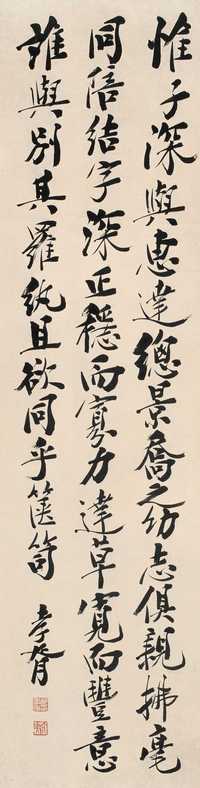 惟子深與惠達總景喬之幼志俱親拂毫
同倍結字深正穩而寡力達草寬而豐意
誰與別其羅紈且欲同乎篋笥
孝胥